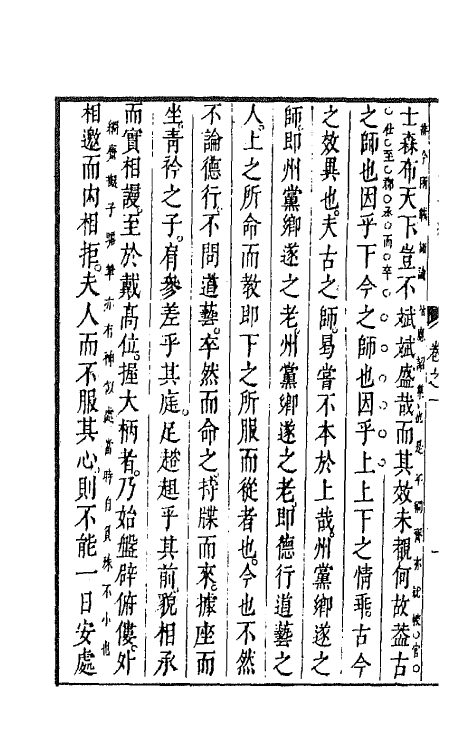 卷之一
士森布天下豈不斌斌盛哉而其效未覩何故葢古
仕至郡丞而卒
之師也因乎下今之師也因乎上上下之情乖古今
之效異也夫古之師曷嘗不本於上哉州黨鄉遂之
師即州黨鄉遂之老州黨鄉遂之老即德行道藝之
人上之所命而教即下之所服而從者也今也不然
不論德行不問道藝卒然而命之持牒而來據座而
坐青衿之子有參差乎其庭足趑趄乎其前貌相承
而實相謾至於戴髙位握大柄者乃始盤辟俯僂外
子瞻筆亦有神似處當時自負殊不小也
相邀而内相拒夫人而不服其心則不能一日安處